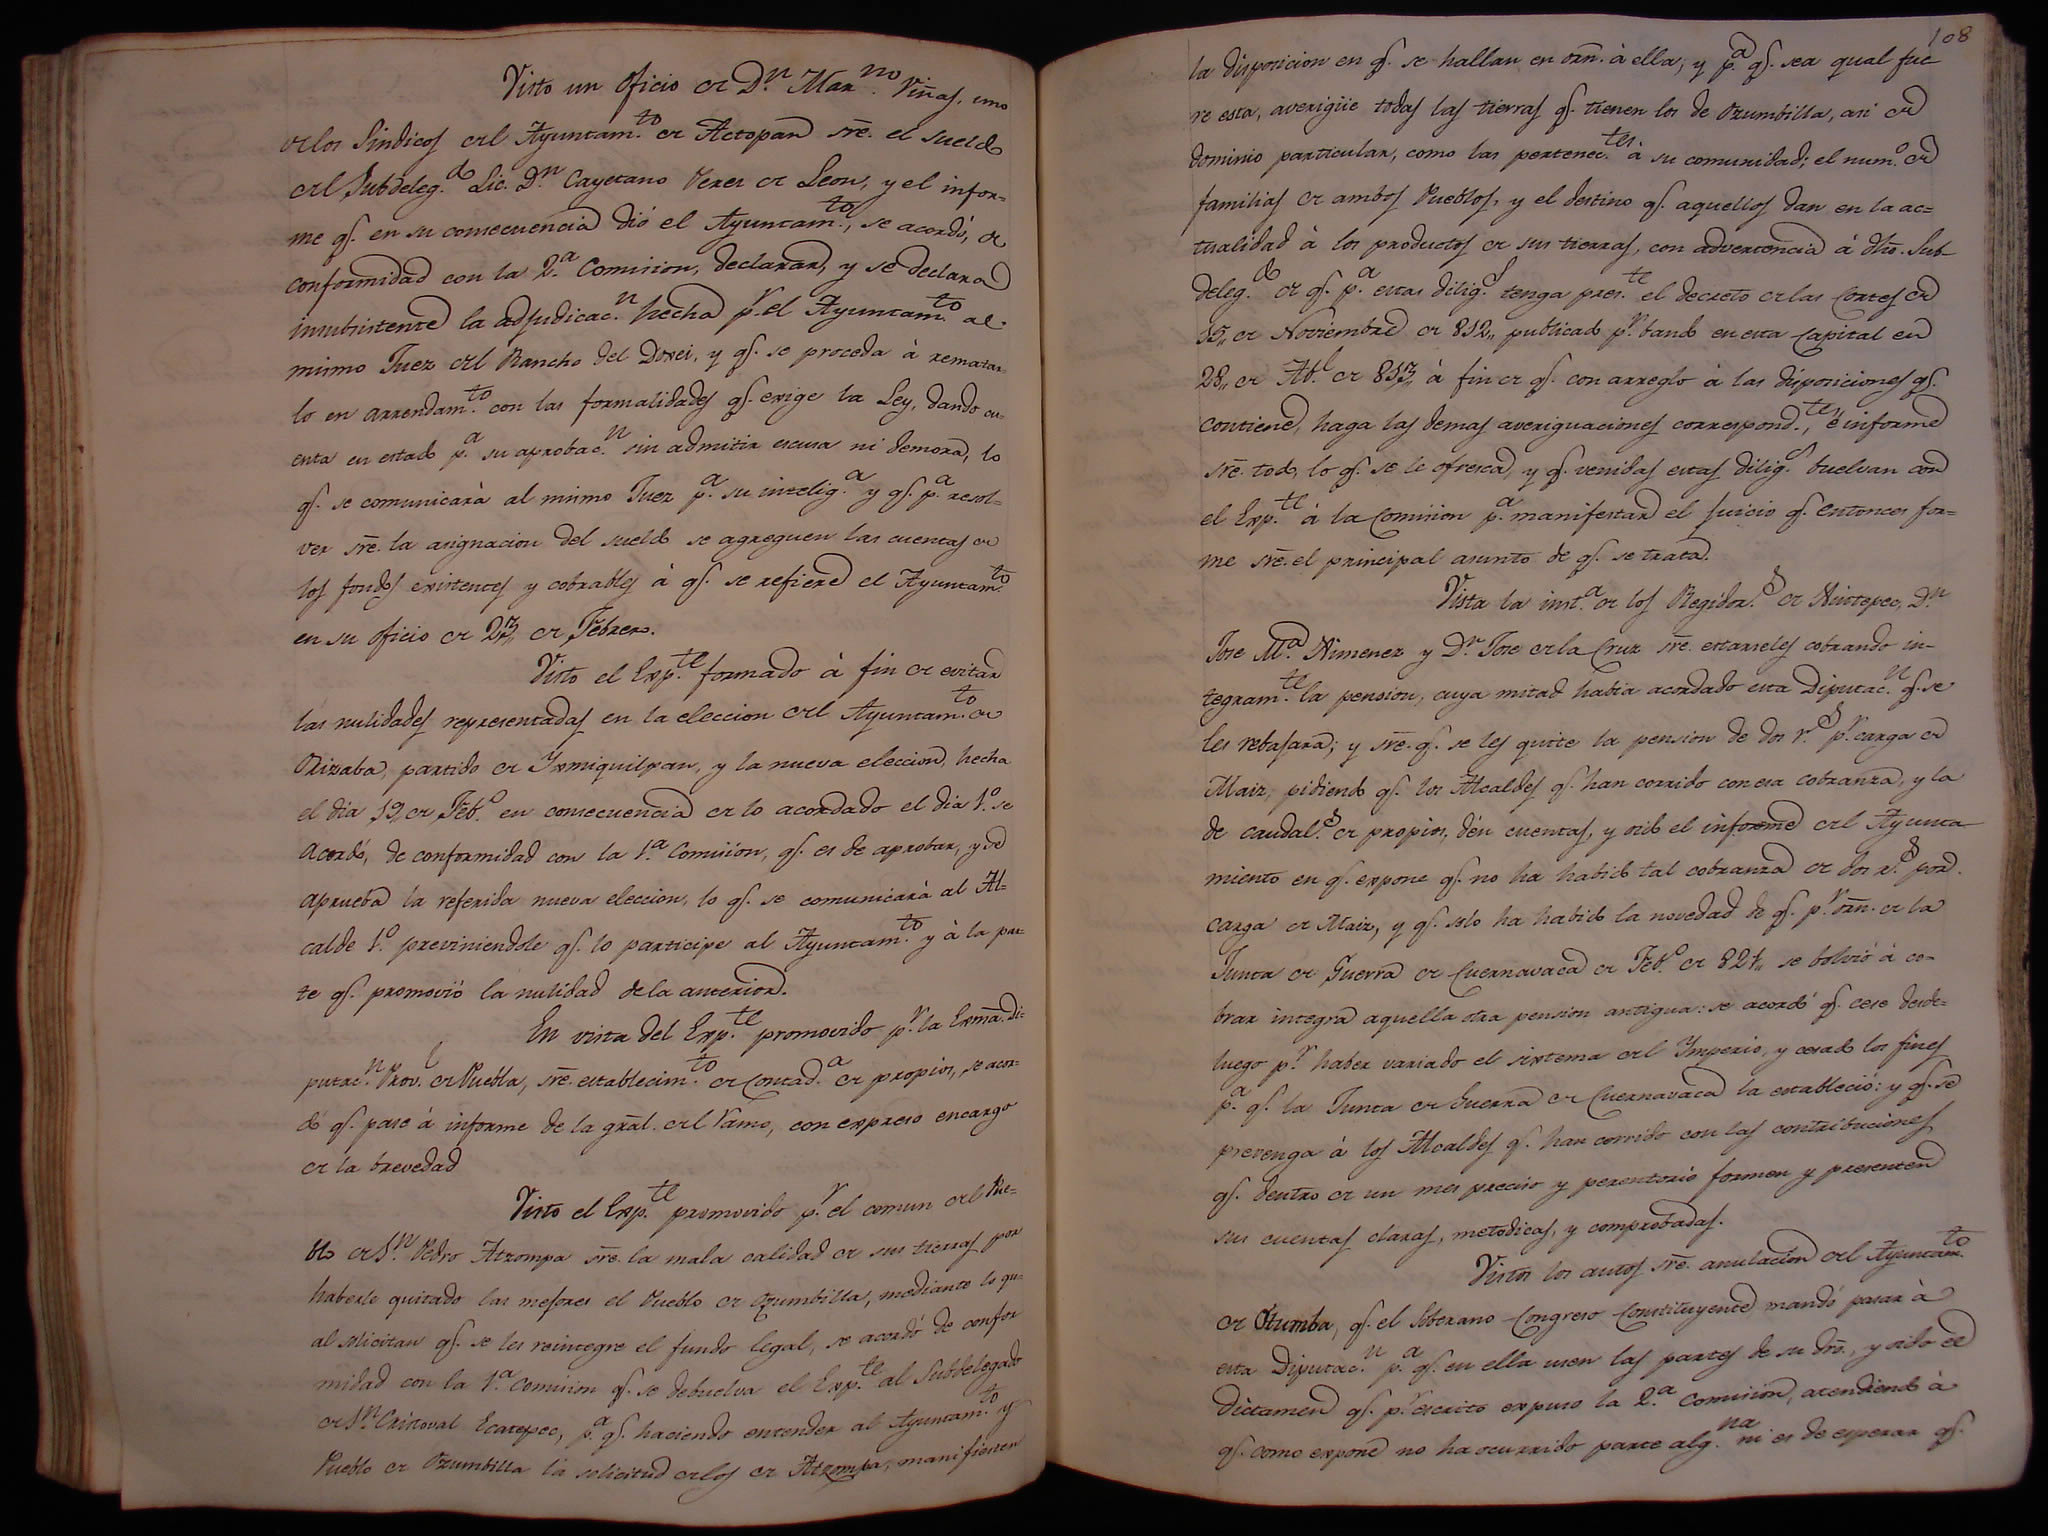 Visto un Oficio de D.n Mar.no Viñas, uno
de los Sindicos del Ayuntam.to de Actopan sre. el sueldo
del Subdeleg.do Lic. D.n Cayetano Perez de Leon, y el infor-
me q.e en su consecuencia dió el Ayuntam.to, se acordó, de
conformidad con la 2.a Comision, declarar, y se declara
insubsistente la adjudicac.n hecha p.r el Ayuntam.to al
mismo Juez del Rancho del Doxei, y q.e se proceda à rematar-
lo en arrendam.to con las formalidades q.e exige la Ley, dando cu-
enta en estado p.a su aprobac.n sin admitir escusa ni demora, lo
q.e se comunicarà al mismo Juez p.a su intelig.a y q.e p.a resol-
ver sre. la asignacion del sueldo se agreguen las cuentas de
los fondos existentes y cobrables à q.e se refiere el Ayuntam.to
en su oficio de 23,, de Febrero.
Visto el Exp.te formado à fin de evitar
las nulidades representadas en la eleccion del Ayuntam.to de
Orizaba, partido de Yxmiquilpan, y la nueva eleccion, hecha
el dia 19,, de Feb.o en consecuencia de lo acordado el dia 1.o se
acordó, de conformidad con la 1.a Comision, q.e es de aprobar, y se
aprueba la referida nueva eleccion, lo q.e se comunicarà al Al-
calde 1.o previniendole q.e lo participe al Ayuntam.to y à la par-
te q.e promovió la nulidad de la anterior.
En vista del Exp.te promovido p.r la Exma. Di-
putac.n Prov.l de Puebla, sre. establecim.to de Contad.a de propios, se acor-
dó q.e pase à informe de la gral. del Ramo, con expreso encargo
de la brevedad
Visto el Exp.te promovido p.r el comun del Pue-
blo de S.n Pedro Atzompa sre. la mala calidad de sus tierras por
haberle quitado las mejores el Pueblo de Ozumbilla, mediante lo qu-
al solicitan q.e se les reintegre el fundo legal, se acordó de confor
midad con la 1.a Comision q.e se debuelva el Exp.te al Subdelegado
de S.n Cristoval Ecatepec, p.a q.e haciendo entender al Ayuntam.to y
Pueblo de Ozumbilla la solicitud de los de Atzompa, manifiesten
108
la disposicion en q.e se hallan en orn. à ella; y p.a q.e sea qual fue
re esta, averigüe todas las tierras q.e tienen los de Ozumbilla, asi de
dominio particular, como las pertenec.tes à su comunidad; el num.o de
familias de ambos Pueblos, y el destino q.e aquellos dan en la ac-
tualidad à los productos de sus tierras, con advertencia à dho. Sub-
deleg.do de q.e p.a estas dilig.s tenga pres.te el decreto de las Cortes de
15,, de Noviembre de 812,, publicado p.r bando en esta Capital en
28,, de Ab.l de 813,, à fin de q.e con arreglo à las disposiciones q.e
contiene, haga las demas averiguaciones correspond.tes, é informe
sre. todo, lo q.e se le ofresca, y q.e venidas estas dilig.s buelvan con
el Exp.te à la Comision p.a manifestar el juicio q.e entonces for-
me sre. el principal asunto de q.e se trata.
Vista la inst.a de los Regidor.s de Xiutepec, D.n
Jose M.a Ximenez y D.n Jose de la Cruz sre. estarseles cobrando in-
tegram.te la pension, cuya mitad habia acordado esta Diputac.n q.e se
les rebajara; y sre. q.e se les quite la pension de dos r.s p.r carga de
Maiz, pidiendo q.e los Alcaldes q.e han corrido con esa cobranza, y la
de caudal.s de propios, dén cuentas, y oido el informe del Ayunta
miento en q.e expone q.e no ha habido tal cobranza de dos r.s por
carga de Maiz, y q.e solo ha habido la novedad de q.e p.r orn. de la
Junta de Guerra de Cuernavaca de Feb.o de 821,, se bolvió à co-
brar integra aquella otra pension antigua: se acordó q.e cese desde-
luego p.r haber variado el sistema del Ymperio, y cesado los fines
p.a q.e la Junta de Guerra de Cuernavaca la estableció: y q.e se
prevenga à los Alcaldes q.e han corrido con las contribuciones
q.e dentro de un mes preciso y perentorio formen y presenten
sus cuentas claras, metodicas, y comprobadas.
Vistos los autos sre. anulacion del Ayuntam.to
de Otumba, q.e el Soberano Congreso Constituyente mandó pasar à
esta Diputac.n p.a q.e en ella usen las partes de su dro., y oido el
Dictamen q.e p.r escrito expuso la 2.a Comision, atendiendo à
q.e como expone no ha ocurrido parte alg.na ni es de esperar q.e